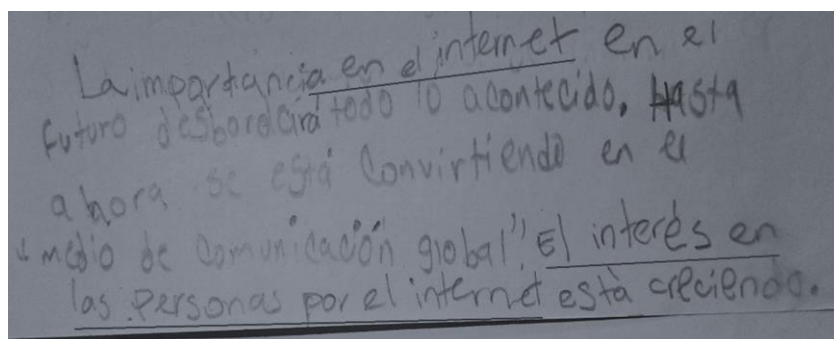 La importáncia en el internet en el
futuro desbordará todo lo acontecido. Hasta
ahora se está Convirtiendo en el
medio de comunicación global". El interés en
las personas por el internet está creciendo.